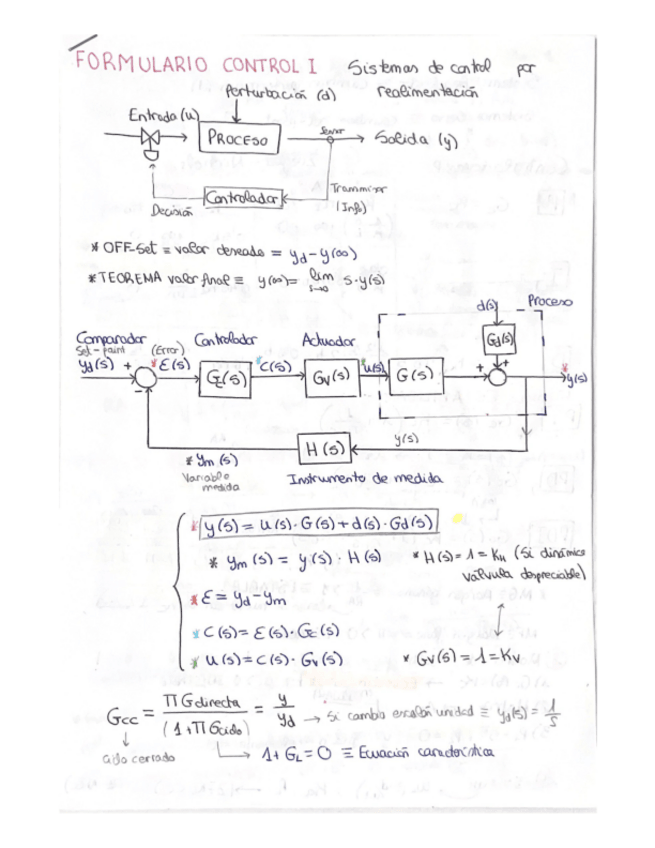 FORMULARIO CONTROL I Sistemas de control por
realimentación
Perturbación (d)
Entrada (u)
PROCESO
Sensor
Salida (y)
Controlador
Transmisor
(Info)
Decisión
* OFF-Set ≡ valor deseado = yd - y(∞)
* TEOREMA valor final ≡ y(∞) = lim s→0 s·y(s)
d(s) Proceso
Comparador Controlador Actuador
Set-point (Error)
Gd(s)
yd(s) + * ε(s) Gc(s) * C(s) Gv(s) * u(s) G(s) + + * y(s)
-
H(s) y(s)
* ym(s)
Variable
medida
Instrumento de medida
* y(s) = u(s)·G(s) + d(s)·Gd(s)
* ym(s) = y(s)·H(s) * H(s) = 1 = KH (Si dinámica
válvula despreciable)
* ε = yd - ym
* C(s) = ε(s)·Gc(s)
* u(s) = C(s)·Gv(s) * Gv(s) = 1 = Kv
Gcc = π Gdirecta / (1 + π Gciclo) = y / yd → Si cambio escalón unidad ≡ yd(s) = 1/s
↓
Ciclo cerrado → 1 + GL = 0 ≡ Ecuación característica